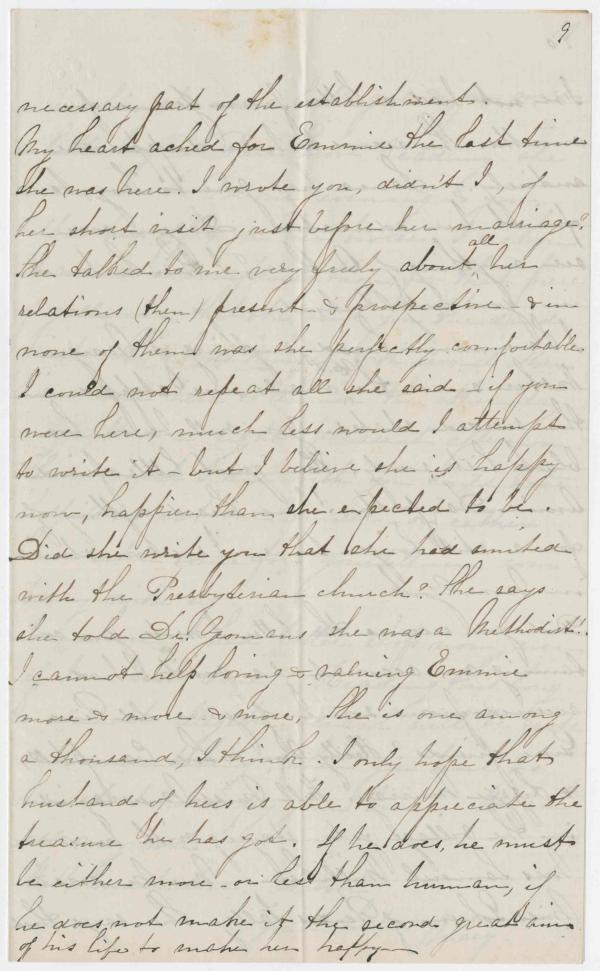 9
necessary part of the establishment.
My heart ached for Emmie the last time
she was here. I wrote you, didn't I, of
her short visit just before her marriage?
She talked to me very freely about all her
relations (then) present - & prospective - & in
none of them was she perfectly comfortable
I could not repeat all she said - if you
were here, much less would I attempt
to write it - but I believe she is happy
now, happier than she expected to be.
Did she write you that she had united
with the Presbyterian church? She says
she told Dr. Yomans she was a Methodist!
I cannot help loving & valuing Emmie
more & more & more. She is one among
a thousand, I think. I only hope that
husband of hers is able to appreciate the
treasure he has got. If he does, he must
be either more - or less than human, if
he does not make it the second great aim
of his life to make her happy -